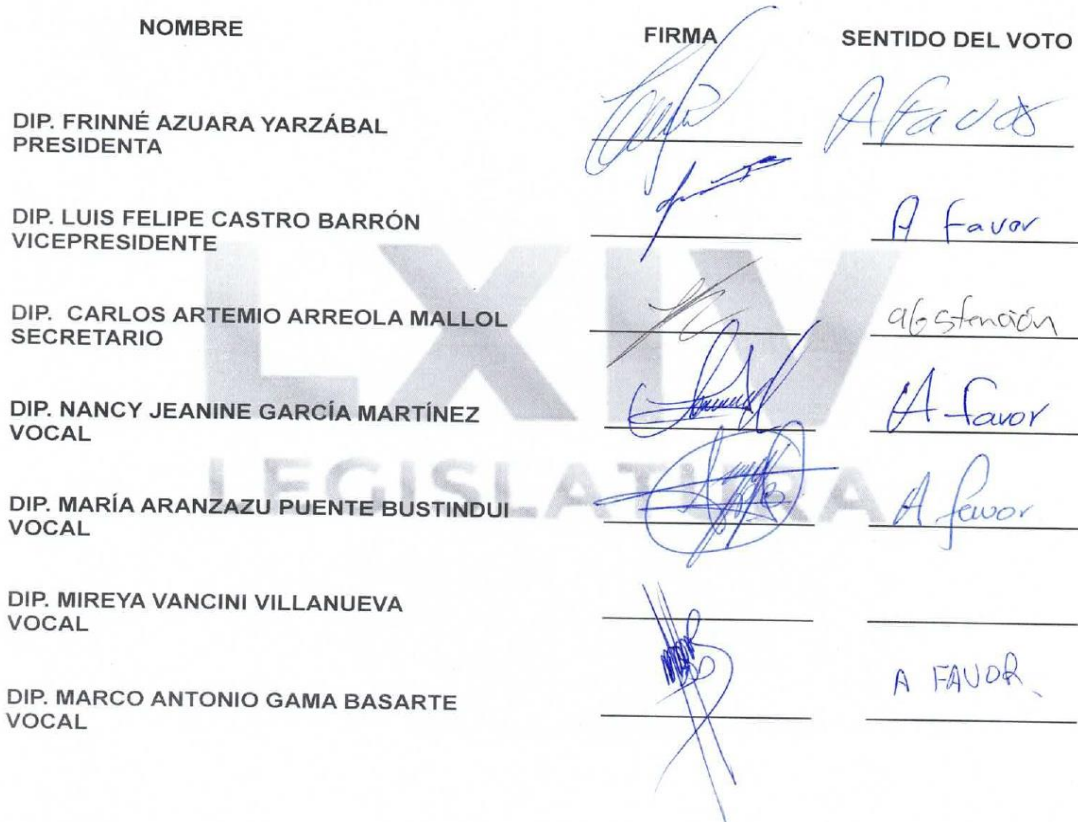 NOMBRE FIRMA SENTIDO DEL VOTO
DIP. FRINNÉ AZUARA YARZÁBAL
PRESIDENTA
A favor
DIP. LUIS FELIPE CASTRO BARRÓN
VICEPRESIDENTE
A favor
DIP. CARLOS ARTEMIO ARREOLA MALLOL
SECRETARIO
abstención
DIP. NANCY JEANINE GARCÍA MARTÍNEZ
VOCAL
A favor
DIP. MARÍA ARANZAZU PUENTE BUSTINDUI
VOCAL
A favor
DIP. MIREYA VANCINI VILLANUEVA
VOCAL
DIP. MARCO ANTONIO GAMA BASARTE
VOCAL
A FAVOR
LXIV
LEGISLATURA